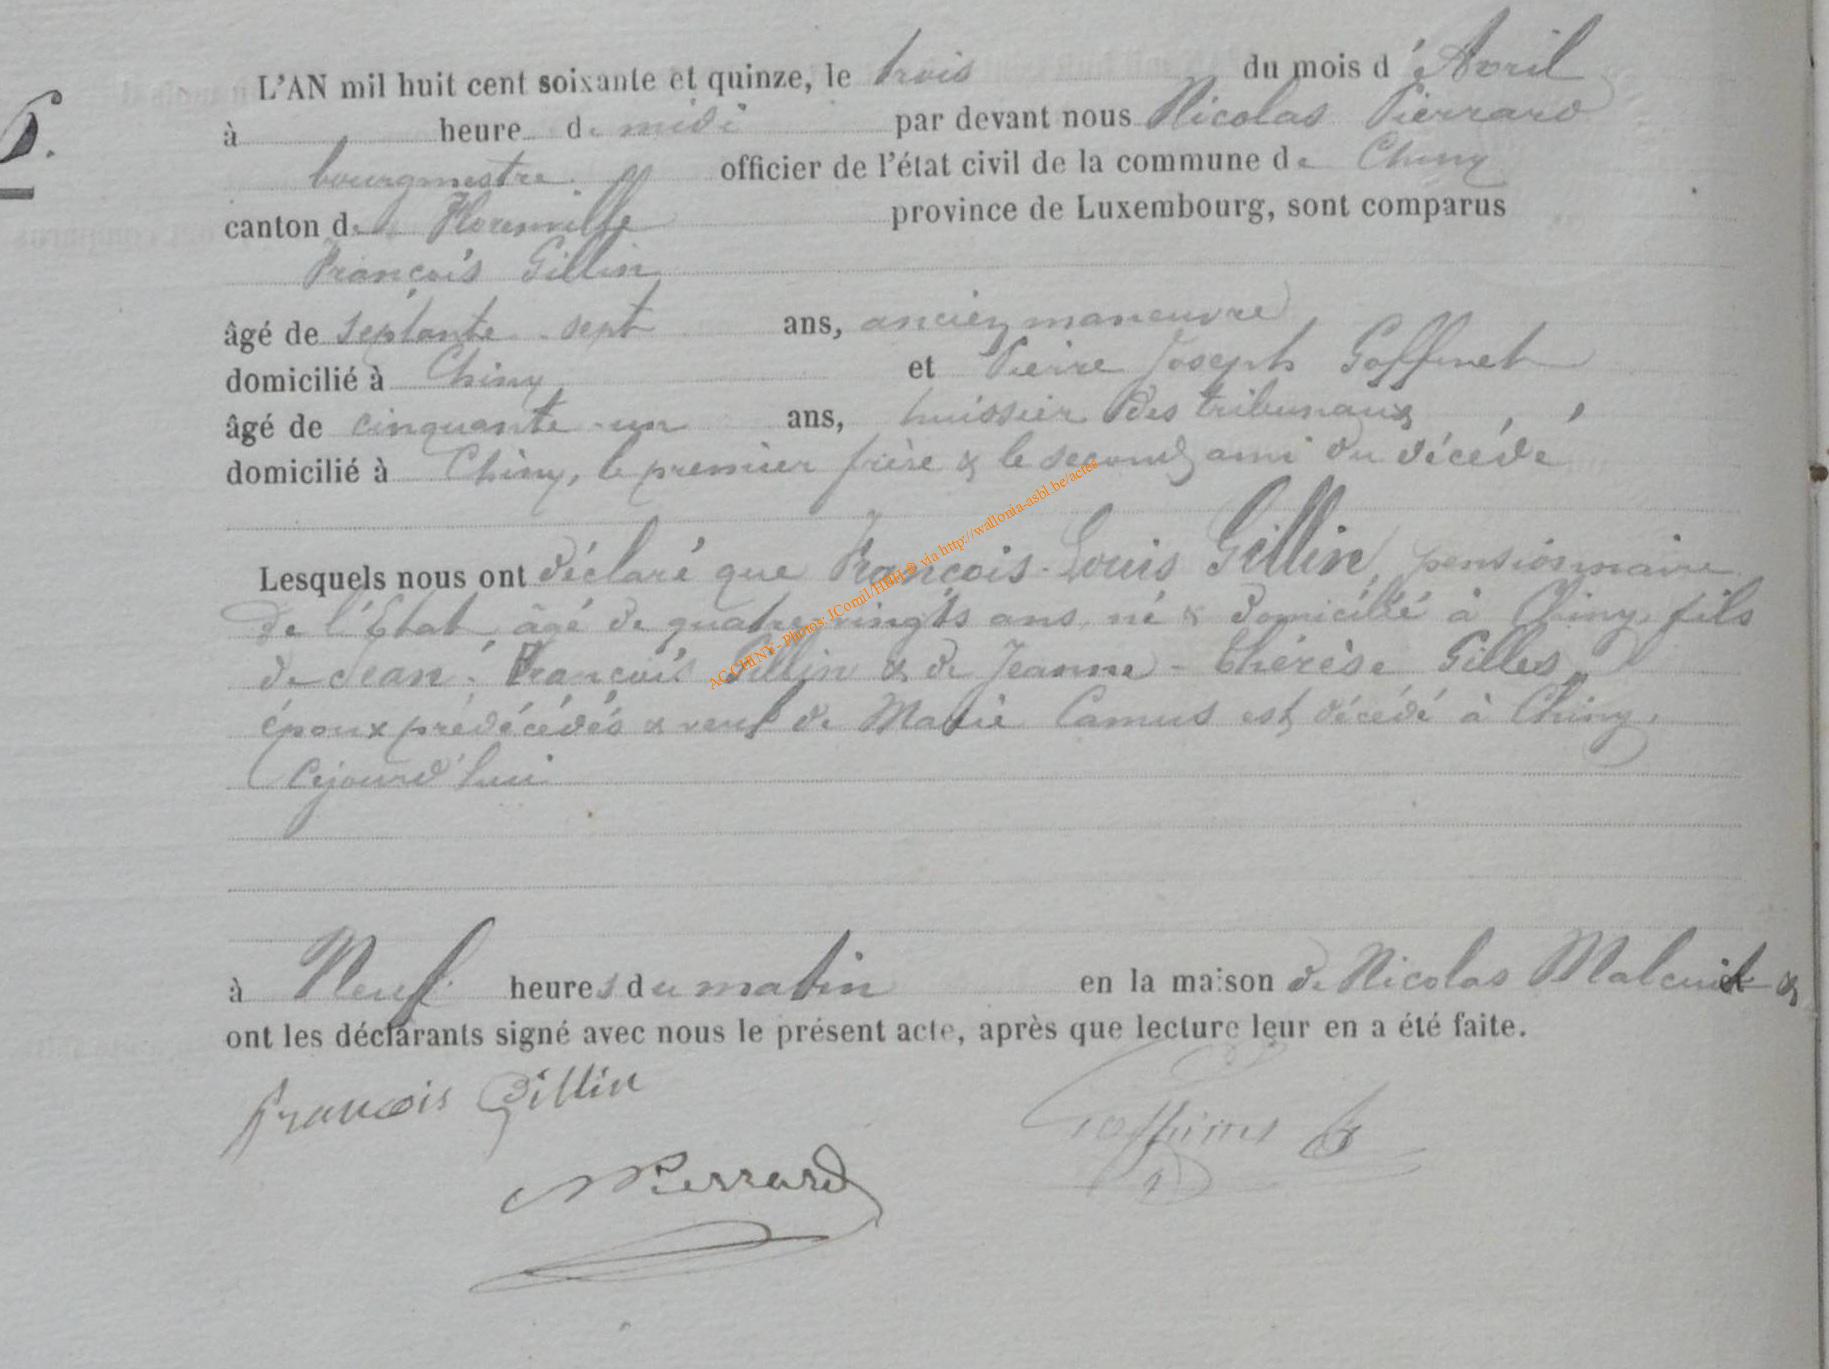 6.
L'AN mil huit cent soixante et quinze, le trois du mois d'Avril
à heure de midi par devant nous Nicolas Pierrard
bourgmestre officier de l'état civil de la commune de Chiny
canton de Florenville province de Luxembourg, sont comparus
François Gillin
âgé de septante-sept ans, ancien manœuvre
domicilié à Chiny et Pierre Joseph Goffinet
âgé de cinquante-un ans, huissier des tribunaux,
domicilié à Chiny, le premier frère & le second ami du décédé
Lesquels nous ont déclaré que François-Louis Gillin, pensionnaire
de l'Etat, âgé de quatre-vingts ans, né & domicilié à Chiny, fils
de Jean-François Gillin & de Jeanne-Thérèse Gilles,
époux prédécédés & veuf de Marie Camus est décédé à Chiny,
cejourd'hui
à Neuf heures du matin en la maison de Nicolas &
ont les déclarants signé avec nous le présent acte, après que lecture leur en a été faite.
François Gillin
NPierrard
AC CHINY - Photos JComil/HHH © via http://wallonia-asbl.be/actes